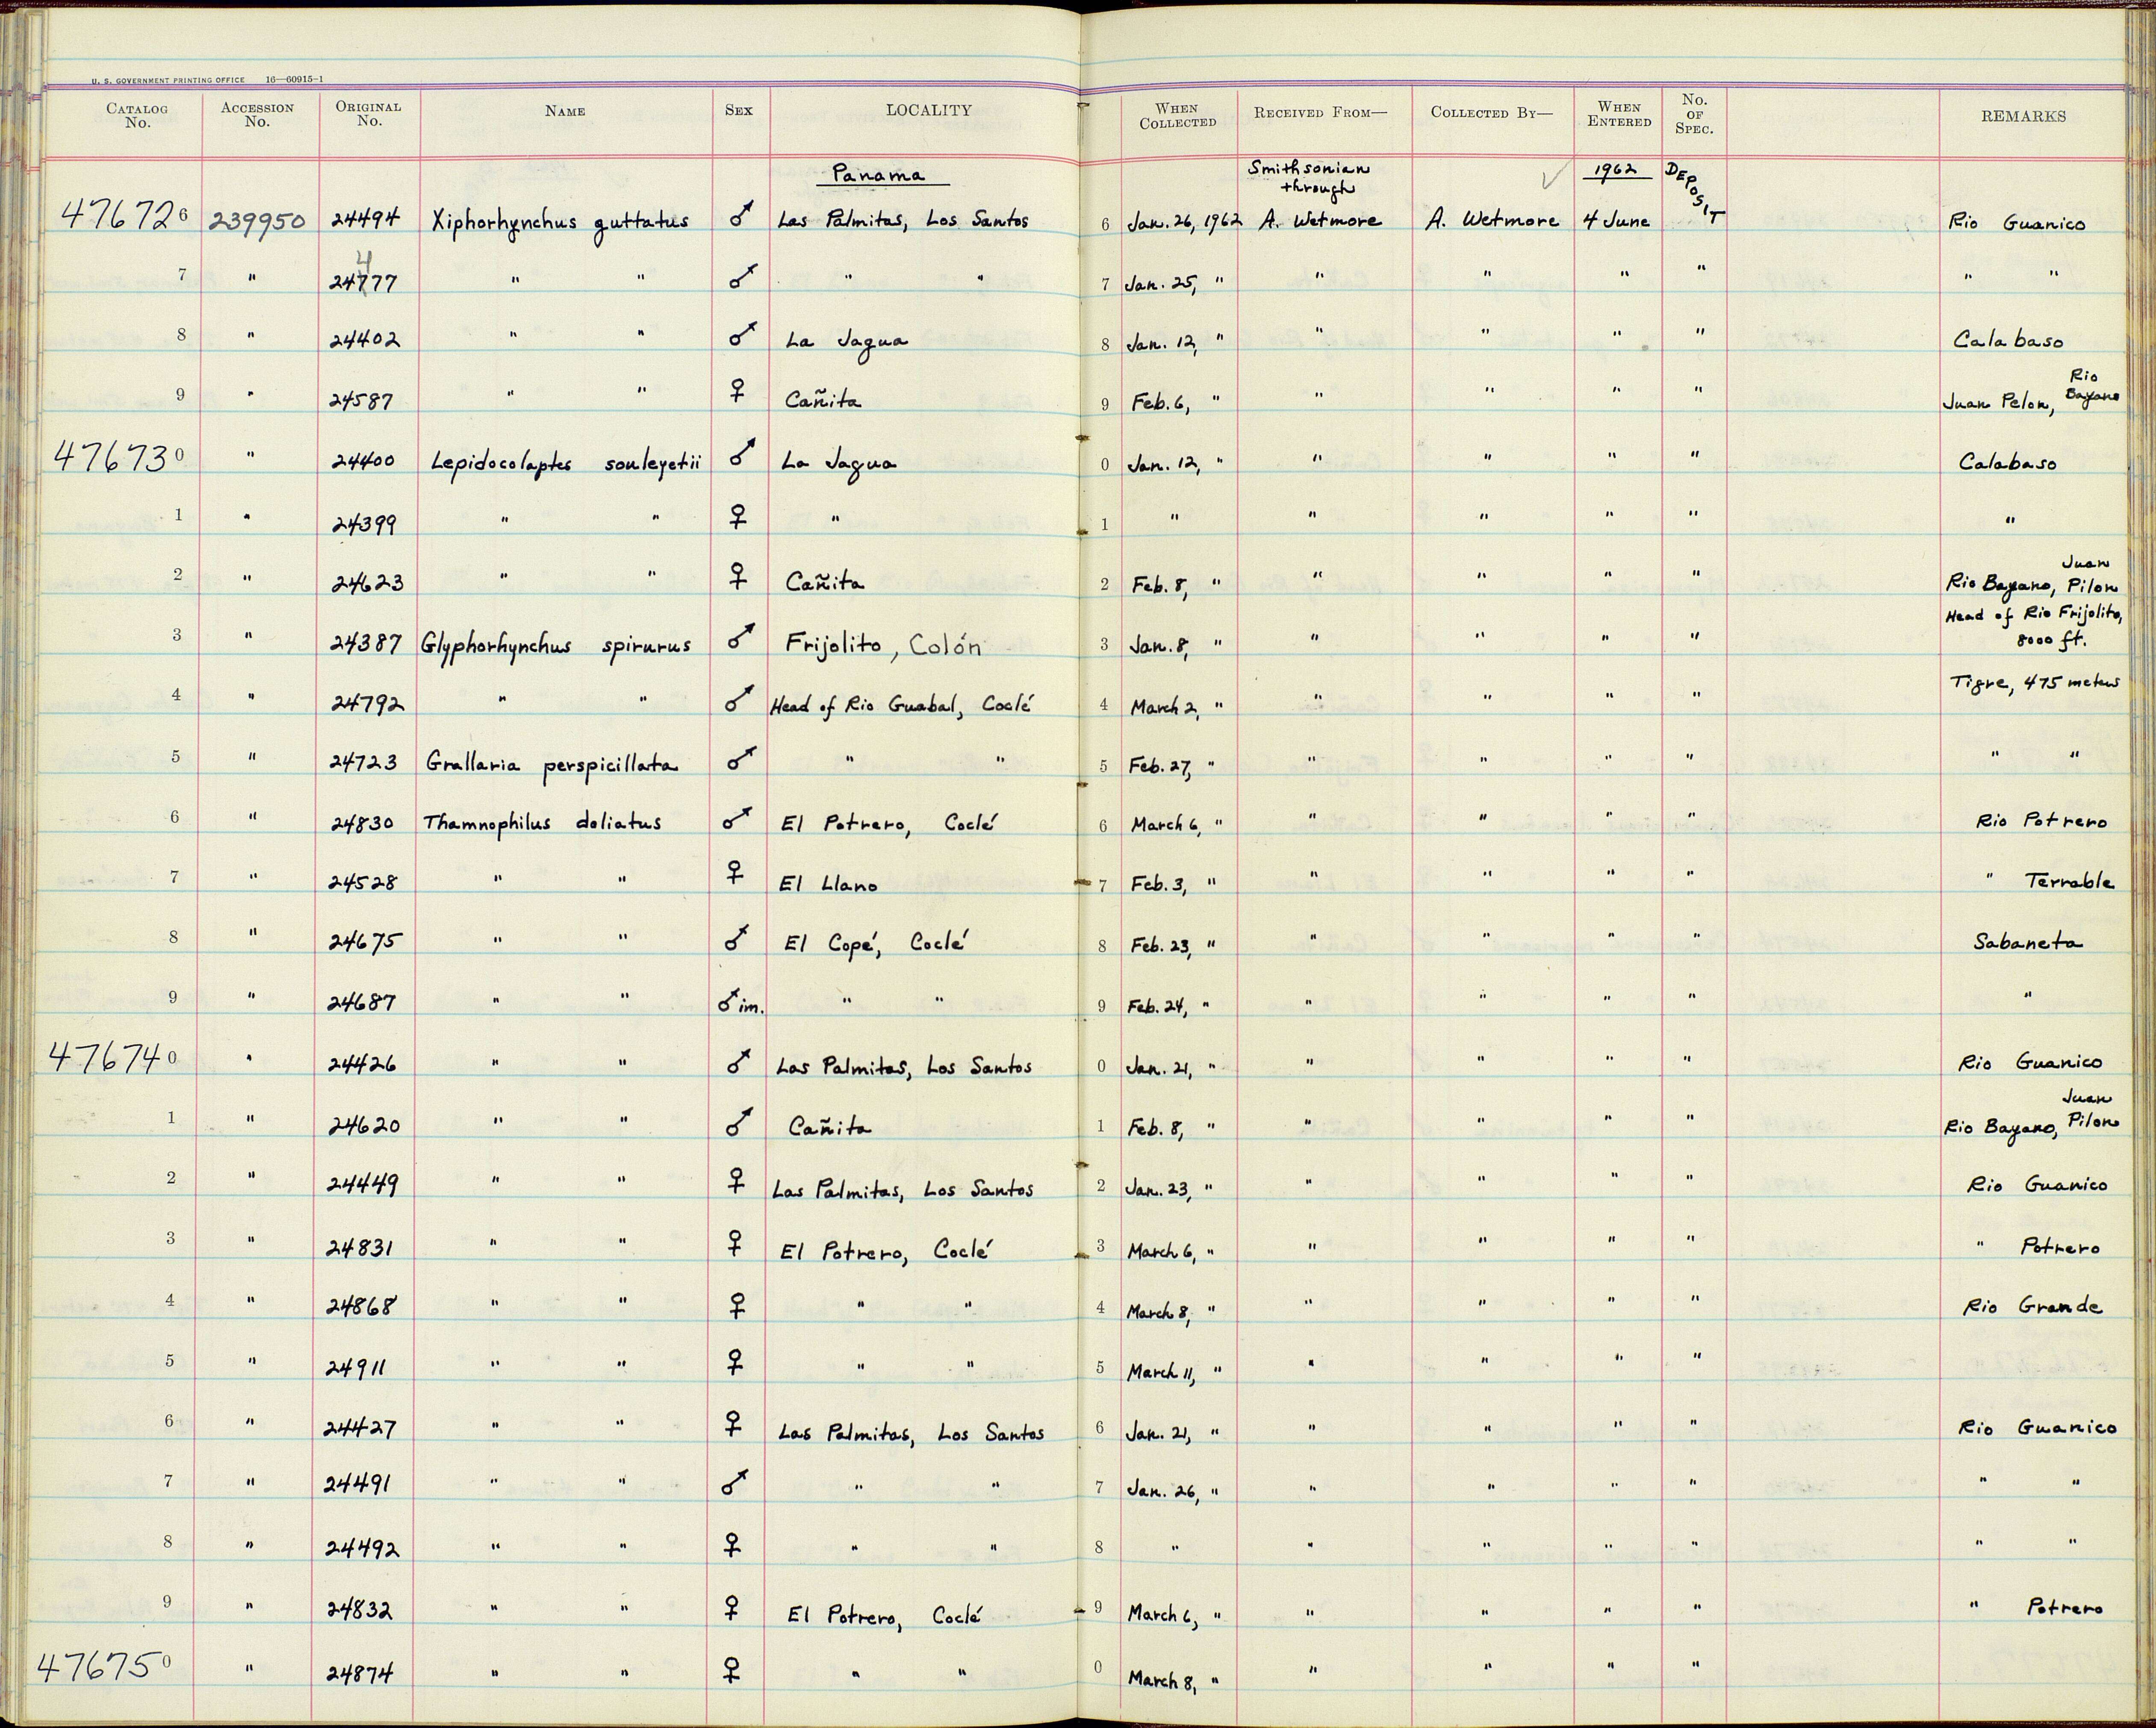 U. S. GOVERNMENT PRINTING OFFICE 16—60915-1
CATALOG No. ACCESSION No. ORIGINAL No. NAME SEX LOCALITY WHEN COLLECTED RECEIVED FROM— COLLECTED BY— WHEN ENTERED No. OF SPEC. REMARKS
Panama Smithsonian through ✓ 1962 DEPOSIT
476726 239950 24494 Xiphorhynchus guttatus ♂ Las Palmitas, Los Santos 6 Jan. 26, 1962 A. Wetmore A. Wetmore 4 June Rio Guanico
7 " 24477 " " ♂ " " 7 Jan. 25, " " " " " " "
8 " 24402 " " ♂ La Jagua 8 Jan. 12, " " " " " Calabaso
9 " 24587 " " ♀ Cañita 9 Feb. 6, " " " " " Juan Pelon, Rio Bayano
476730 " 24400 Lepidocolaptes souleyetii ♂ La Jagua 0 Jan. 12, " " " " " Calabaso
1 " 24399 " " ♀ " 1 " " " " " "
2 " 24623 " " ♀ Cañita 2 Feb. 8, " " " " " Rio Bayano, Juan Pilon
3 " 24387 Glyphorhynchus spirurus ♂ Frijolito, Colón 3 Jan. 8, " " " " " Head of Rio Frijolito, 8000 ft.
4 " 24792 " " ♂ Head of Rio Guabal, Coclé 4 March 2, " " " " " Tigre, 475 meters
5 " 24723 Grallaria perspicillata ♂ " " 5 Feb. 27, " " " " " " "
6 " 24830 Thamnophilus doliatus ♂ El Potrero, Coclé 6 March 6, " " " " " Rio Potrero
7 " 24528 " " ♀ El Llano 7 Feb. 3, " " " " " " Terrable
8 " 24675 " " ♂ El Copé, Coclé 8 Feb. 23, " " " " " Sabaneta
9 " 24687 " " ♂ im. " " 9 Feb. 24, " " " " " "
476740 " 24426 " " ♂ Las Palmitas, Los Santos 0 Jan. 21, " " " " " Rio Guanico
1 " 24620 " " ♂ Cañita 1 Feb. 8, " " " " " Rio Bayano, Juan Pilon
2 " 24449 " " ♀ Las Palmitas, Los Santos 2 Jan. 23, " " " " " Rio Guanico
3 " 24831 " " ♀ El Potrero, Coclé 3 March 6, " " " " " " Potrero
4 " 24868 " " ♀ " " 4 March 8, " " " " " Rio Grande
5 " 24911 " " ♀ " " 5 March 11, " " " " "
6 " 24427 " " ♀ Las Palmitas, Los Santos 6 Jan. 21, " " " " " Rio Guanico
7 " 24491 " " ♂ " " 7 Jan. 26, " " " " " " "
8 " 24492 " " ♀ " " 8 " " " " " " "
9 " 24832 " " ♀ El Potrero, Coclé 9 March 6, " " " " " " Potrero
476750 " 24874 " " ♀ " " 0 March 8, " " " " "